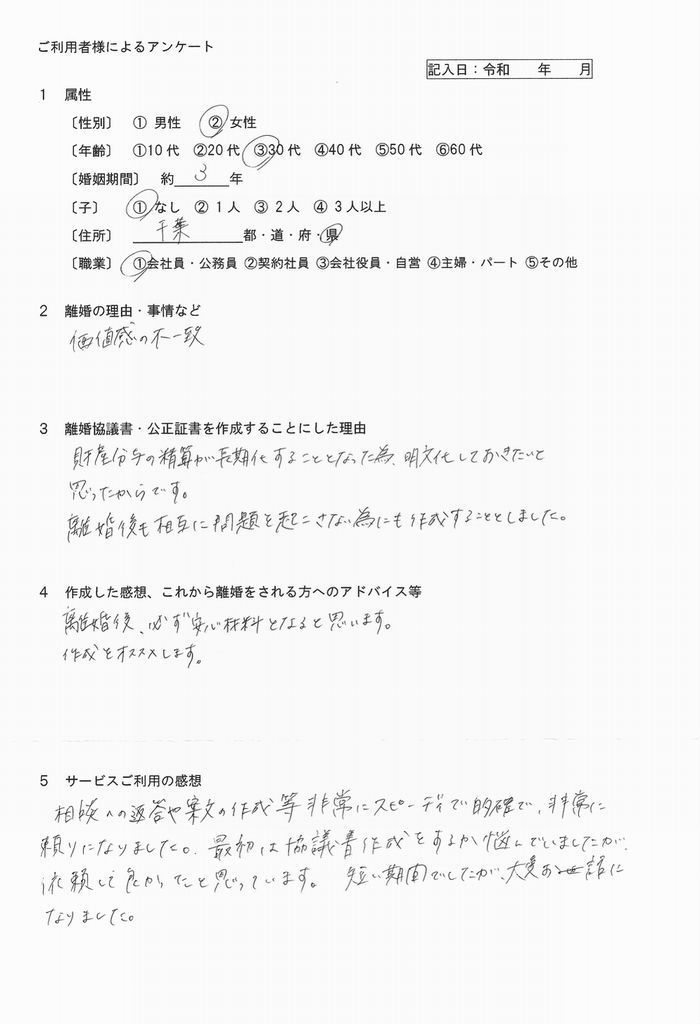 ご利用者様によるアンケート
記入日：令和　　年　　月
1　属性
〔性別〕　① 男性　　② 女性
〔年齢〕　①10代　②20代　③30代　④40代　⑤50代　⑥60代
〔婚姻期間〕　約 3 年
〔子〕　　①なし　② 1人　③ 2人　④ 3人以上
〔住所〕　千葉 都・道・府・県
〔職業〕　①会社員・公務員 ②契約社員 ③会社役員・自営 ④主婦・パート ⑤その他
2　離婚の理由・事情など
価値感の不一致
3　離婚協議書・公正証書を作成することにした理由
財産分与の精算が長期化することとなった為、明文化しておきたいと
思ったからです。
離婚後も相互に問題を起こさない為にも作成することとしました。
4　作成した感想、これから離婚をされる方へのアドバイス等
離婚後、必ず安心材料となると思います。
作成をオススメします。
5　サービスご利用の感想
相談への返答や案文の作成等非常にスピーディで的確で、非常に
頼りになりました。最初は協議書作成をするか悩んでいましたが、
依頼して良かったと思っています。　短い期間でしたが、大変お世話に
なりました。